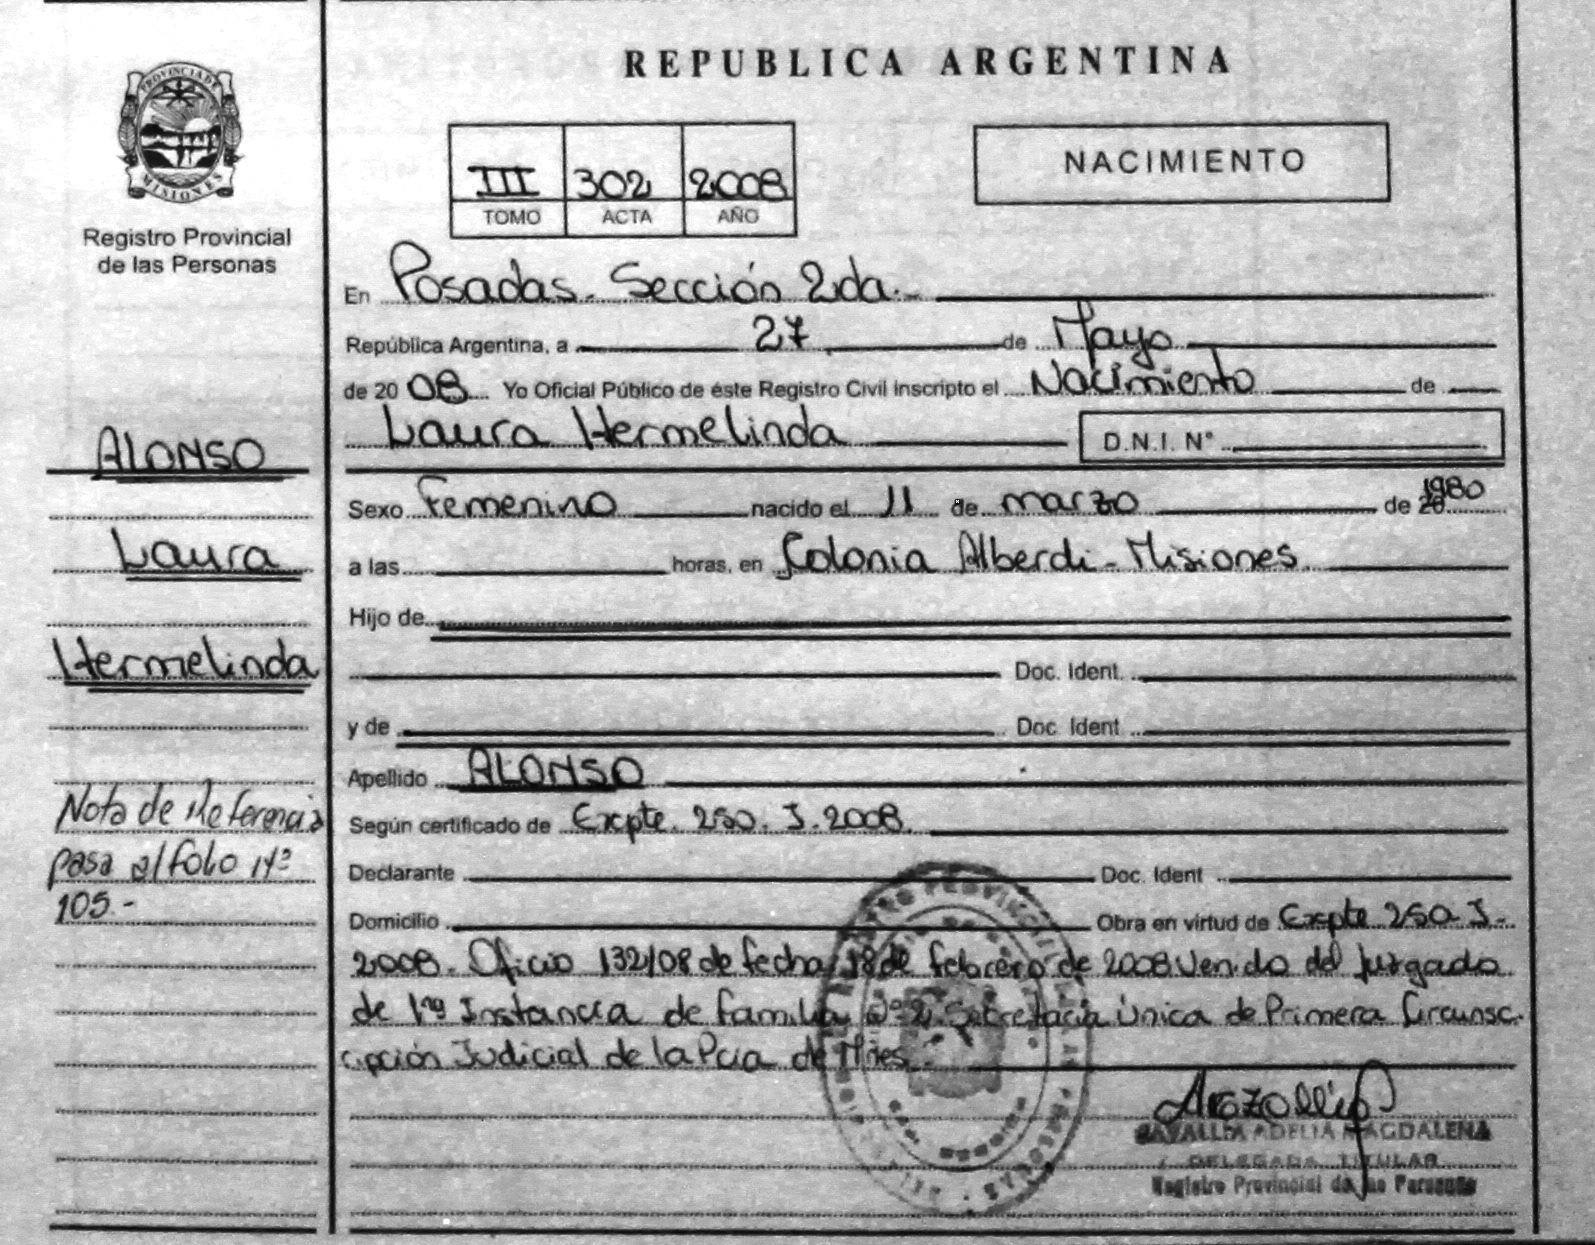 REPUBLICA ARGENTINA
PROVINCIA DE
MISIONES
Registro Provincial
de las Personas
III 302 2008
TOMO ACTA AÑO
NACIMIENTO
En Posadas - Sección 2da.-
República Argentina, a 27 de Mayo
de 20 08 Yo Oficial Público de éste Registro Civil inscripto el Nacimiento de
Laura Hermelinda D.N.I. N°
ALONSO
Sexo Femenino nacido el 11 de marzo de 20 1980
Laura
a las horas, en Colonia Alberdi - Misiones
Hijo de
Hermelinda
Doc. Ident.
y de Doc. Ident
Apellido ALONSO
Nota de Referencia
pasa al folio Nº
105.-
Según certificado de Expte. 250. J. 2008.
Declarante Doc. Ident
Domicilio Obra en virtud de Expte 250-J-
2008. Oficio 132/08 de fecha 18 de febrero de 2008 Venido del Juzgado
de 1ra Instancia de familia Nº 2, Secretaria Única de Primera Circunsc-
ripción Judicial de la Pcia de Mnes.
ADELIA MAGDALENA
DELEGADA TITULAR
Registro Provincial de las Personas